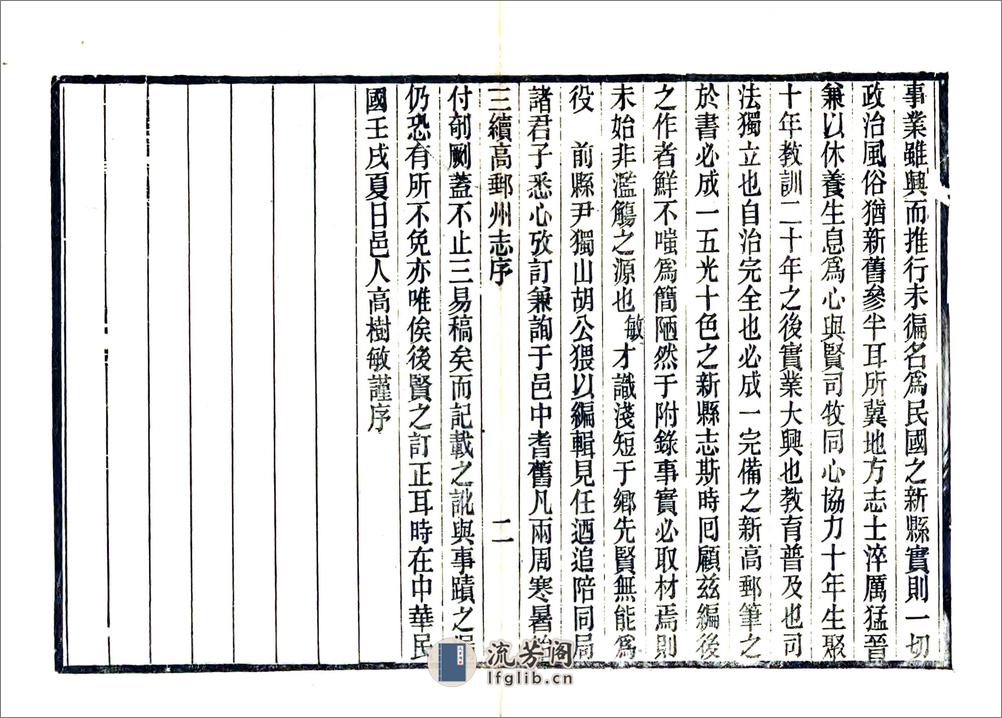 事業雖興而推行未徧名爲民國之新縣實則一切
政治風俗猶新舊參半耳所冀地方志士淬厲猛晉
兼以休養生息爲心與賢司牧同心協力十年生聚
十年教訓二十年之後實業大興也教育普及也司
法獨立也自治完全也必成一完備之新高郵筆之
於書必成一五光十色之新縣志斯時回顧兹編後
之作者鮮不嗤爲簡陋然于附錄事實必取材焉則
未始非濫觴之源也敏才識淺短于鄉先賢無能爲
役 前縣尹獨山胡公猥以編輯見任迺追陪同局
諸君子悉心攷訂兼詢于邑中耆舊凡兩周寒暑始
三續高郵州志序 二
付剞劂蓋不止三易稿矣而記載之訛與事蹟之漏
仍恐有所不免亦唯俟後賢之訂正耳時在中華民
國壬戌夏日邑人高樹敏謹序
流芳阁
lfglib.cn